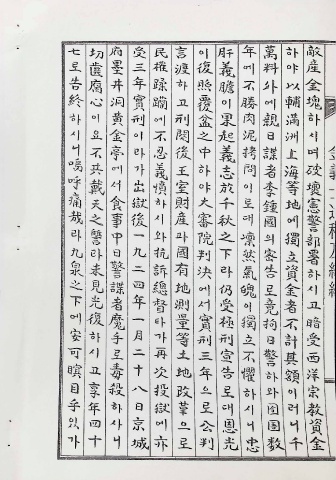 敵産金塊하시며破壞憲警部署하시고暗受西洋宗敎資金
하야以輔滿洲上海等地에獨立資金者不計其額이러니千
萬料外에親日諜者李鍾國의密告로竟拘日警하와囹圄數
年에不勝肉泥拷問이로대凜然氣魄이獨立不懼하시니忠
肝義膽이果起義志於千秋之下라仍受極刑宣告로대恩光
이復照覆盆之中하야大審院判決에서實刑三年으로公判
言渡하고刑閱後王室財産과國有地測量等土地改革으로
民權蹂躪에不忍義憤하시와抗訴總督타가再次投獄에亦
受三年實刑이라가出獄後一九二四年一月二十八日京城
府墨井洞黃金亭에서食事中日警諜者魔手로毒殺하사니
切齒腐心이요不共戴天之讐라未見光復하시고享年四十
七로告終하시니嗚呼痛哉라九泉之下에安可瞑目乎잇가